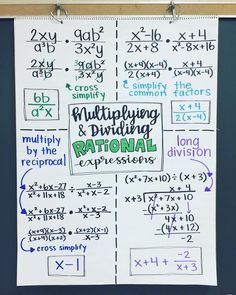 2xy / a³b · 9ab² / 3x²y
2xy / a³b · 9ab² / 3x²y
cross
simplify
6b / a²x
x²-16 / 2x+8 · x+4 / x²-8x+16
(x+4)(x-4) / 2(x+4) · x+4 / (x-4)(x-4)
simplify the
common factors
x+4 / 2(x-4)
Multiplying
& Dividing
RATIONAL
expressions
multiply by
the reciprocal
x²+6x-27 / x²+11x+18 ÷ x-3 / x²+x-2
x²+6x-27 / x²+11x+18 · x²+x-2 / x-3
(x+9)(x-3) / (x+9)(x+2) · (x+2)(x-1) / x-3
cross simplify
x-1
long
division
(x²+7x+10) ÷ (x+3)
x+4
x+3 x²+7x+10
-(x²+3x)
4x+10
-(4x+12)
-2
x+4 + -2 / x+3